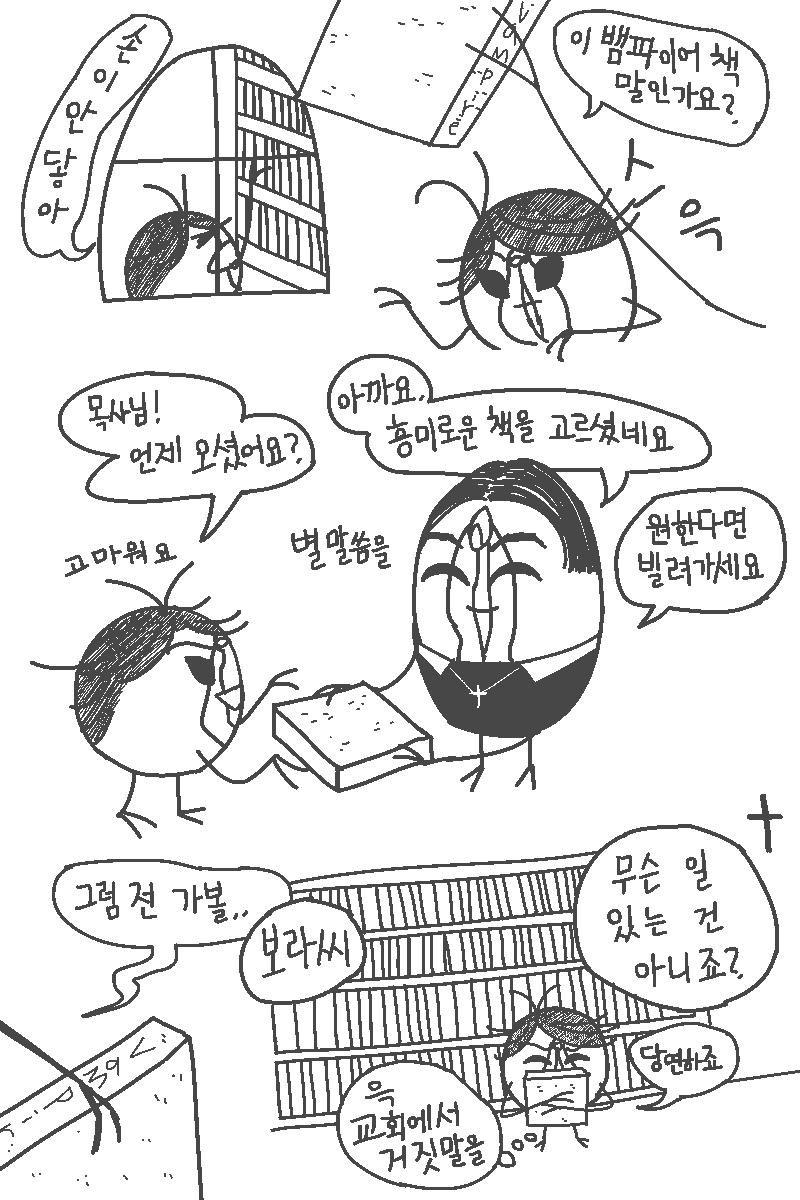 손이 안 닿아
vampire
이 뱀파이어 책
말인가요?
스윽
목사님!
언제 오셨어요?
아까요..
흥미로운 책을 고르셨네요
원한다면
빌려가세요
고마워요
별말씀을
그럼 전 가볼..
보라씨
무슨 일
있는 건
아니죠?
당연하죠
윽
교회에서
거짓말을